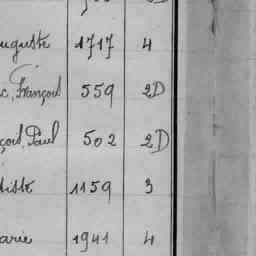 uguste 1717 4
c, François 559 2D
çois, Paul 502 2D
tiste 1159 3
arie 1941 4